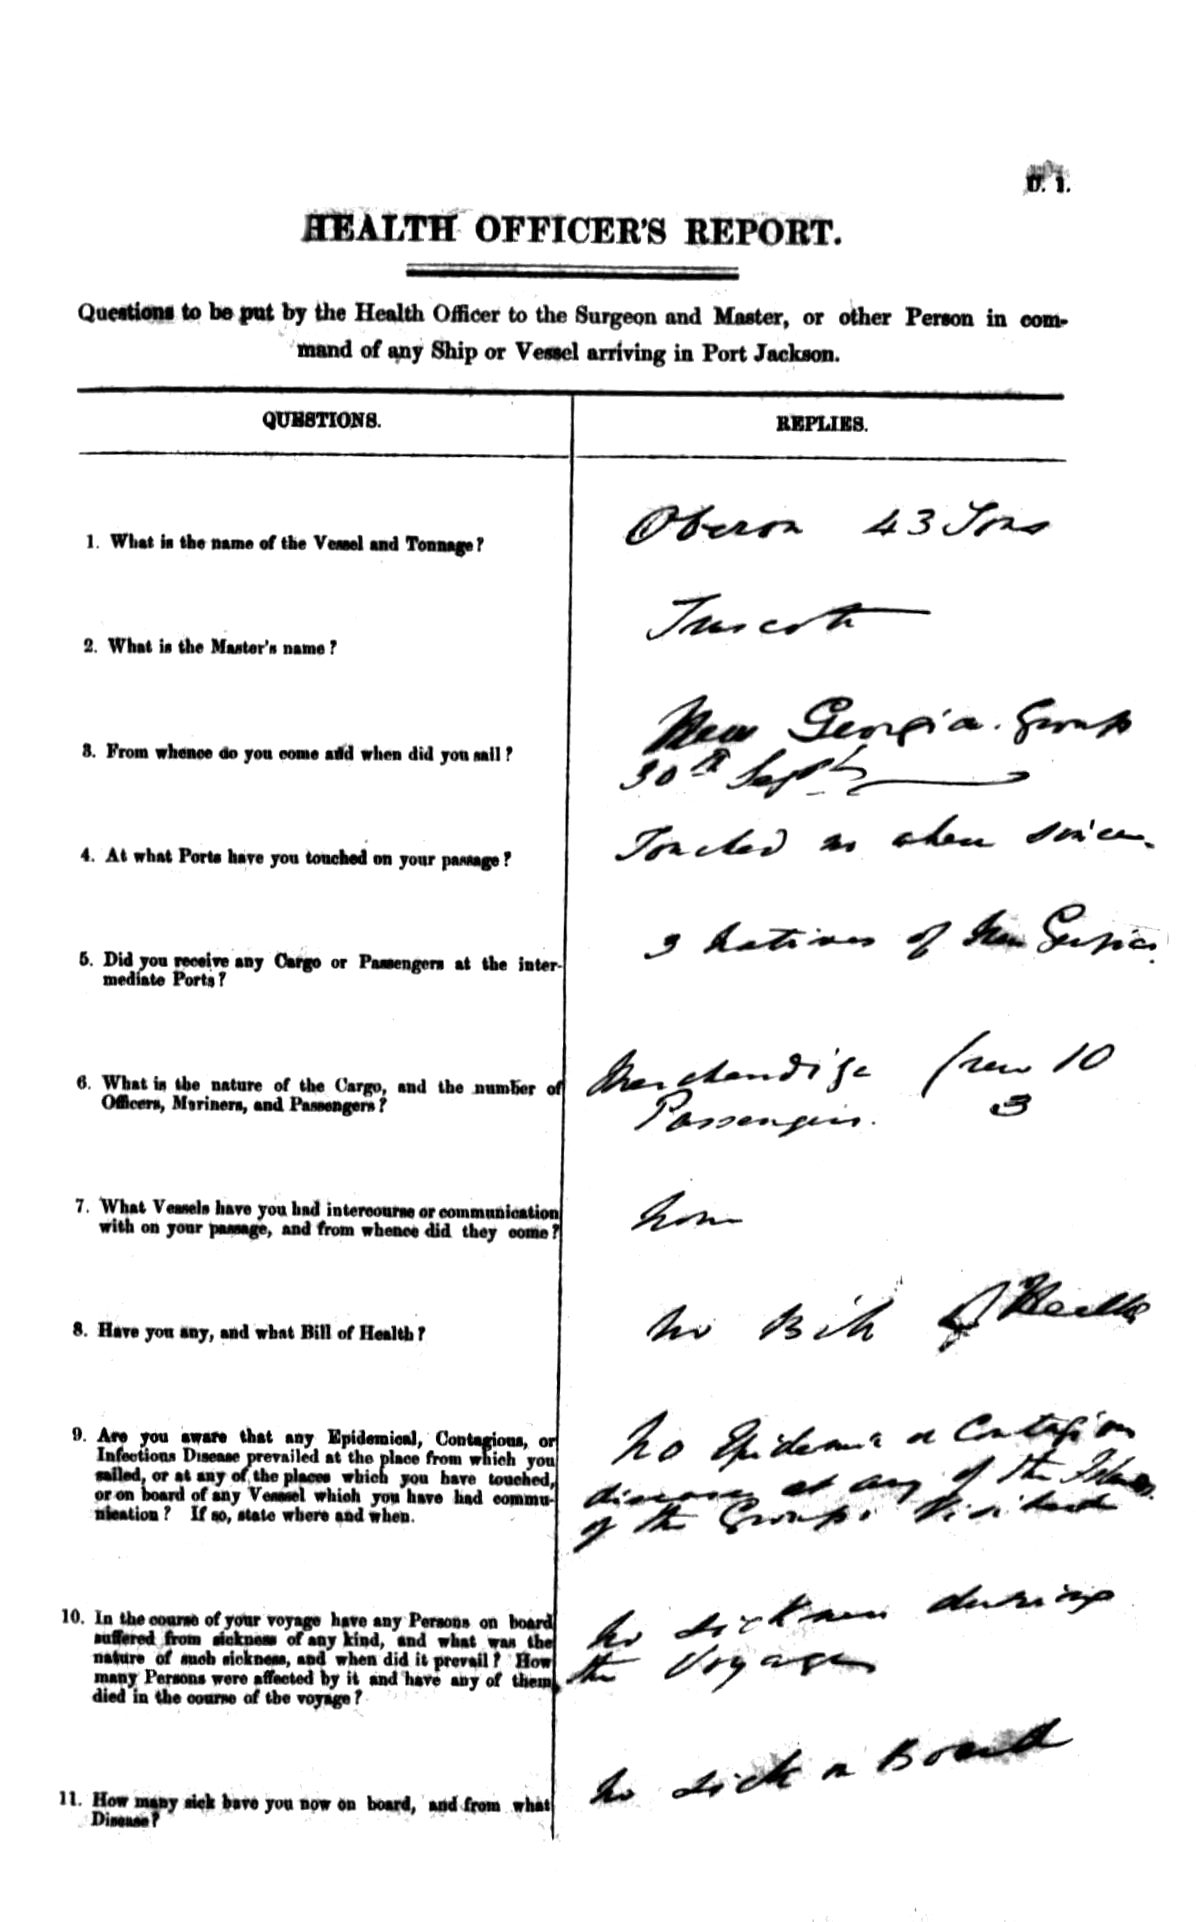 U. 1.
HEALTH OFFICER'S REPORT.
Questions to be put by the Health Officer to the Surgeon and Master, or other Person in com-
mand of any Ship or Vessel arriving in Port Jackson.
QUESTIONS.
REPLIES.
1. What is the name of the Vessel and Tonnage?
Oberon 43 Tons
2. What is the Master's name?
Truscott
3. From whence do you come and when did you sail?
New Georgia. Group
30th Sept
4. At what Ports have you touched on your passage?
Touched no where since.
5. Did you receive any Cargo or Passengers at the inter-
mediate Ports?
3 Natives of New Georgia.
6. What is the nature of the Cargo, and the number of
Officers, Mariners, and Passengers?
Merchandise Crew 10
Passengers. 3
7. What Vessels have you had intercourse or communication
with on your passage, and from whence did they come?
None
8. Have you any, and what Bill of Health?
No Bill of Health
9. Are you aware that any Epidemical, Contagious, or
Infectious Disease prevailed at the place from which you
sailed, or at any of the places which you have touched,
or on board of any Vessel which you have had commu-
nication? If so, state where and when.
No Epidemic or Contagious
disease at any of the Islands
of the Group. Visited
10. In the course of your voyage have any Persons on board
suffered from sickness of any kind, and what was the
nature of such sickness, and when did it prevail? How
many Persons were affected by it and have any of them
died in the course of the voyage?
No sickness during
the Voyage
11. How many sick have you now on board, and from what
Disease?
No sick on Board